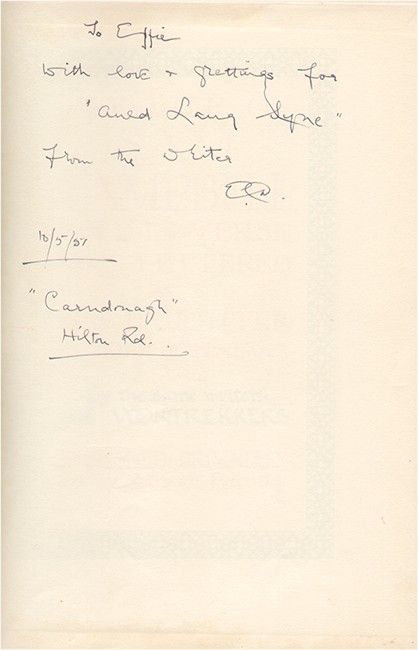 To Effie
With love + greetings for
"Auld Lang Syne"
From the Writer
10/5/51
"Carndonagh"
Hilton Rd.